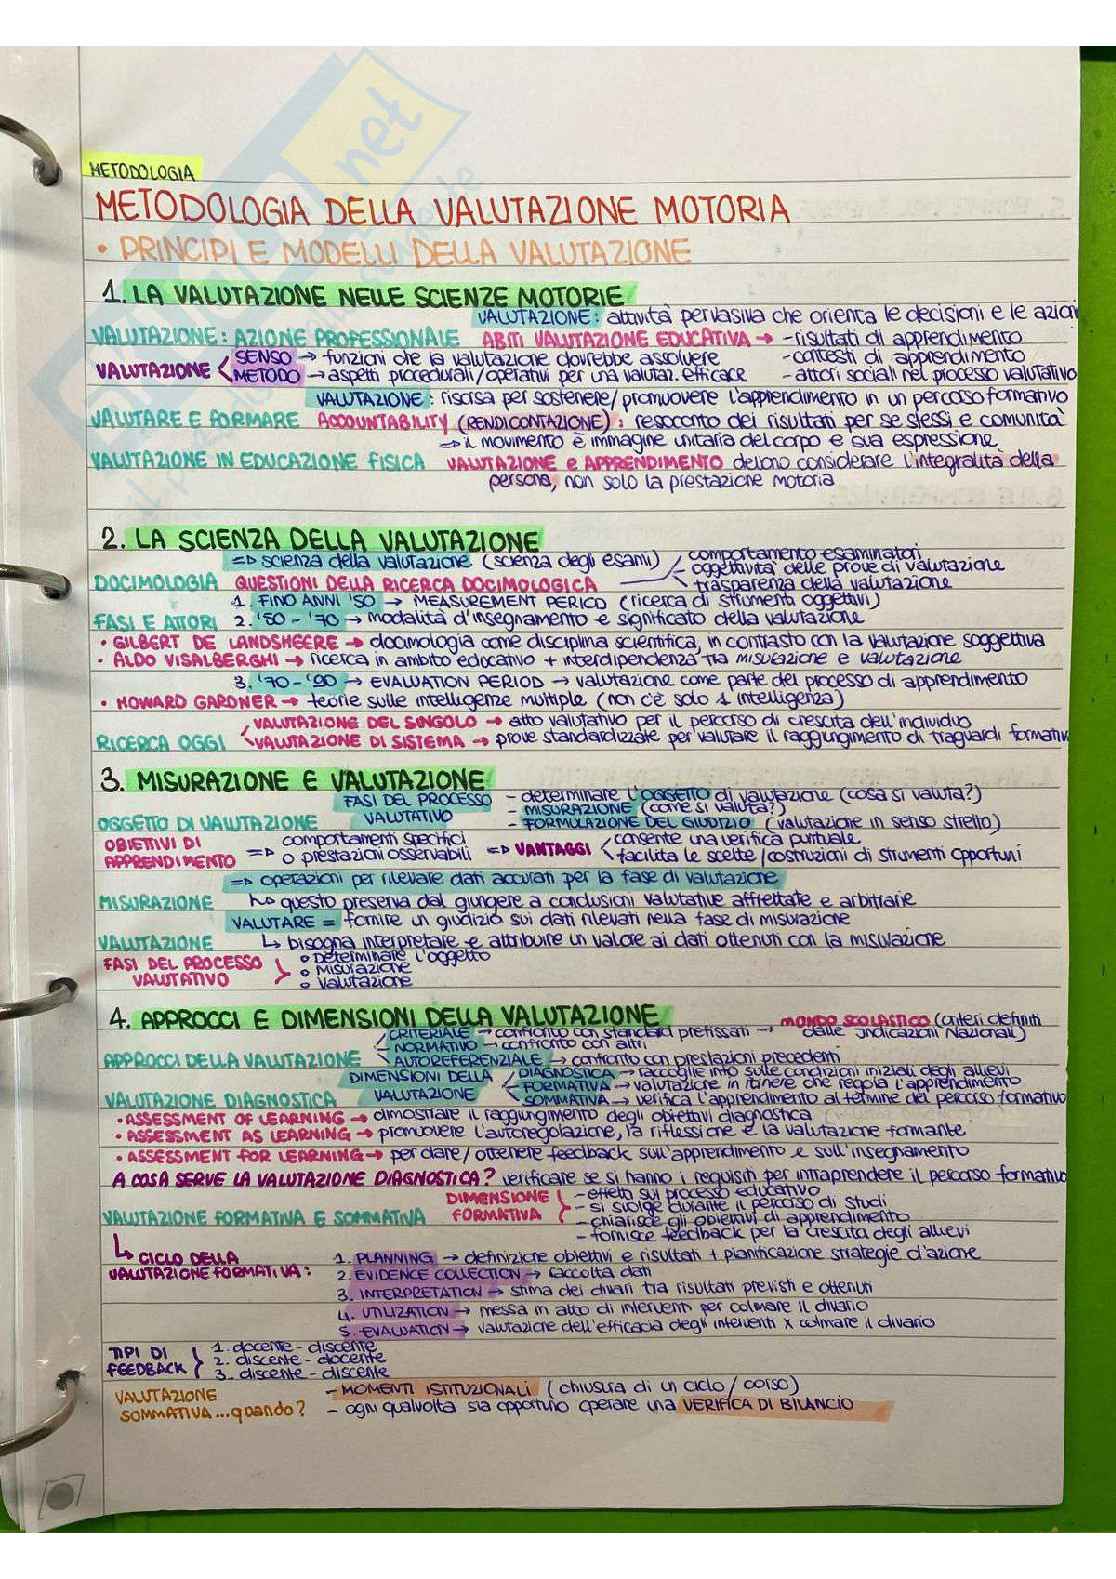 METODOLOGIA
METODOLOGIA DELLA VALUTAZIONE MOTORIA
• PRINCIPI E MODELLI DELLA VALUTAZIONE
1. LA VALUTAZIONE NELLE SCIENZE MOTORIE
VALUTAZIONE: attività pervasiva che orienta le decisioni e le azioni
VALUTAZIONE: AZIONE PROFESSIONALE ABITI VALUTAZIONE EDUCATIVA → - risultati di apprendimento
VALUTAZIONE < SENSO → funzioni che la valutazione dovrebbe assolvere - contesti di apprendimento
METODO → aspetti procedurali/operativi per una valutaz. efficace - attori sociali nel processo valutativo
VALUTAZIONE: risorsa per sostenere/promuovere l'apprendimento in un percorso formativo
VALUTARE E FORMARE ACCOUNTABILITY (RENDICONTAZIONE): resoconto dei risultati per se stessi e comunità
→ il movimento è immagine unitaria del corpo e sua espressione
VALUTAZIONE IN EDUCAZIONE FISICA VALUTAZIONE e APPRENDIMENTO devono considerare l'integralità della
persona, non solo la prestazione motoria
2. LA SCIENZA DELLA VALUTAZIONE
=> scienza della valutazione (scienza degli esami) comportamento esaminatori
DOCIMOLOGIA QUESTIONI DELLA RICERCA DOCIMOLOGICA oggettività delle prove di valutazione
trasparenza della valutazione
1. FINO ANNI '50 → MEASUREMENT PERIOD (ricerca di strumenti oggettivi)
FASI E ATTORI 2. '50 - '70 → modalità d'insegnamento e significato della valutazione
• GILBERT DE LANDSHEERE → docimologia come disciplina scientifica, in contrasto con la valutazione soggettiva
• ALDO VISALBERGHI → ricerca in ambito educativo + interdipendenza tra misurazione e valutazione
3. '70 - '90 → EVALUATION PERIOD → valutazione come parte del processo di apprendimento
• HOWARD GARDNER → teorie sulle intelligenze multiple (non c'è solo 1 intelligenza)
VALUTAZIONE DEL SINGOLO → atto valutativo per il percorso di crescita dell'individuo
RICERCA OGGI VALUTAZIONE DI SISTEMA → prove standardizzate per valutare il raggiungimento di traguardi formativi
3. MISURAZIONE E VALUTAZIONE
FASI DEL PROCESSO VALUTATIVO - determinare l'OGGETTO di valutazione (cosa si valuta?)
- MISURAZIONE (come si valuta?)
OGGETTO DI VALUTAZIONE - FORMULAZIONE DEL GIUDIZIO (valutazione in senso stretto)
OBIETTIVI DI APPRENDIMENTO => comportamenti specifici o prestazioni osservabili => VANTAGGI < consente una verifica puntuale
facilita le scelte/costruzioni di strumenti opportuni
=> operazioni per rilevare dati accurati per la fase di valutazione
MISURAZIONE ↳ questo preserva dal giungere a conclusioni valutative affrettate e arbitrarie
VALUTARE = fornire un giudizio sui dati rilevati nella fase di misurazione
VALUTAZIONE ↳ bisogna interpretare e attribuire un valore ai dati ottenuti con la misurazione
FASI DEL PROCESSO VALUTATIVO } ○ Determinare l'oggetto
○ Misurazione
○ Valutazione
4. APPROCCI E DIMENSIONI DELLA VALUTAZIONE
CRITERIALE → confronto con standard prefissati → MONDO SCOLASTICO (criteri definiti dalle Indicazioni Nazionali)
NORMATIVO → confronto con altri
APPROCCI DELLA VALUTAZIONE AUTOREFERENZIALE → confronto con prestazioni precedenti
DIMENSIONI DELLA VALUTAZIONE < DIAGNOSTICA → raccoglie info sulle condizioni iniziali degli allievi
FORMATIVA → valutazione in itinere che regola l'apprendimento
VALUTAZIONE DIAGNOSTICA SOMMATIVA → verifica l'apprendimento al termine del percorso formativo
• ASSESSMENT OF LEARNING → dimostrare il raggiungimento degli obiettivi diagnostica
• ASSESSMENT AS LEARNING → promuovere l'autoregolazione, la riflessione e la valutazione formante
• ASSESSMENT FOR LEARNING → per dare/ottenere feedback sull'apprendimento e sull'insegnamento
A COSA SERVE LA VALUTAZIONE DIAGNOSTICA? verificare se si hanno i requisiti per intraprendere il percorso formativo
DIMENSIONE FORMATIVA } - effetto sul processo educativo
- si svolge durante il percorso di studi
VALUTAZIONE FORMATIVA E SOMMATIVA - chiarisce gli obiettivi di apprendimento
- fornisce feedback per la crescita degli allievi
↳ CICLO DELLA VALUTAZIONE FORMATIVA: 1. PLANNING → definizione obiettivi e risultati + pianificazione strategie d'azione
2. EVIDENCE COLLECTION → raccolta dati
3. INTERPRETATION → stima dei divari tra risultati previsti e ottenuti
4. UTILIZATION → messa in atto di interventi per colmare il divario
5. EVALUATION → valutazione dell'efficacia degli interventi x colmare il divario
TIPI DI FEEDBACK } 1. docente - discente
2. discente - docente
3. discente - discente
VALUTAZIONE - MOMENTI ISTITUZIONALI (chiusura di un ciclo/corso)
SOMMATIVA ... quando? - ogni qualvolta sia opportuno operare una VERIFICA DI BILANCIO